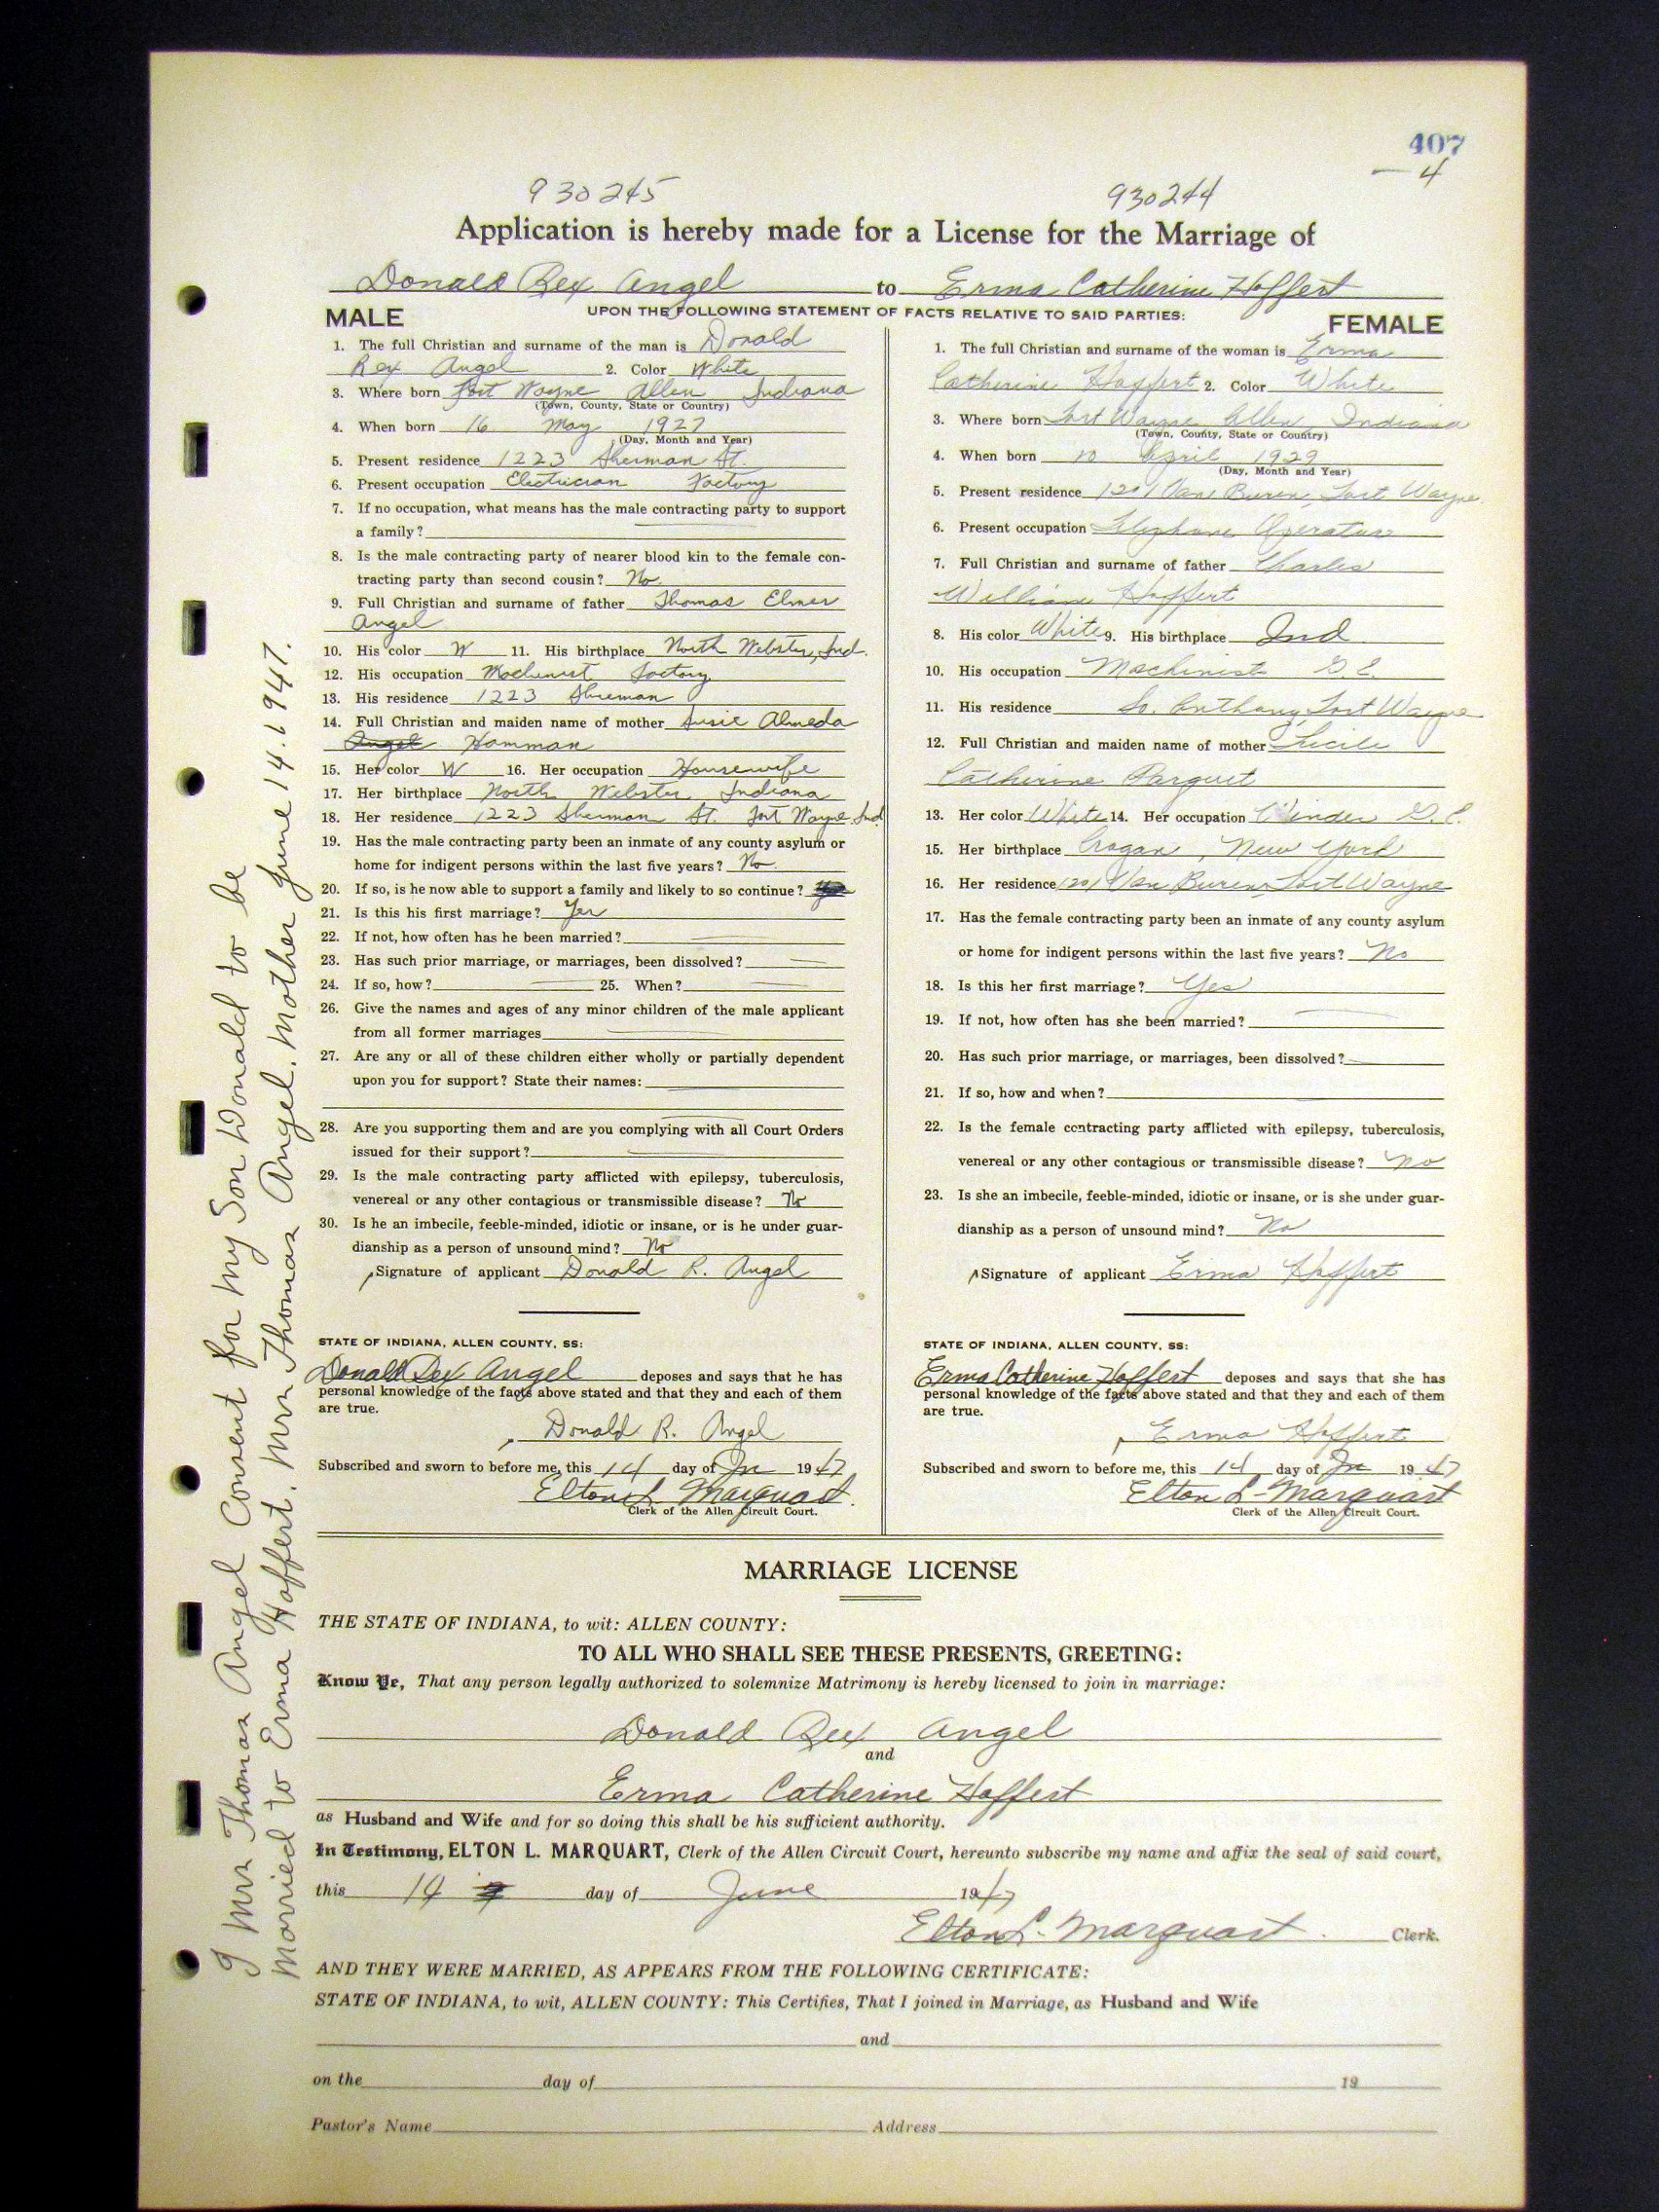 407
4
930245 930244
Application is hereby made for a License for the Marriage of
Donald Rex Angel to Erma Catherine Hoffert
UPON THE FOLLOWING STATEMENT OF FACTS RELATIVE TO SAID PARTIES:
MALE
1. The full Christian and surname of the man is Donald
Rex Angel 2. Color White
3. Where born Fort Wayne Allen Indiana
(Town, County, State or Country)
4. When born 16 May 1927
(Day, Month and Year)
5. Present residence 1223 Sherman St.
6. Present occupation Electrician Factory
7. If no occupation, what means has the male contracting party to support
a family?
8. Is the male contracting party of nearer blood kin to the female con-
tracting party than second cousin? No
9. Full Christian and surname of father Thomas Elmer
Angel
10. His color W 11. His birthplace North Webster, Ind.
12. His occupation Machinist Factory
13. His residence 1223 Sherman
14. Full Christian and maiden name of mother Susie Almeda
Angel Hamman
15. Her color W 16. Her occupation Housewife
17. Her birthplace North Webster Indiana
18. Her residence 1223 Sherman St. Fort Wayne Ind
19. Has the male contracting party been an inmate of any county asylum or
home for indigent persons within the last five years? No
20. If so, is he now able to support a family and likely to so continue?
21. Is this his first marriage? Yes
22. If not, how often has he been married?
23. Has such prior marriage, or marriages, been dissolved?
24. If so, how? 25. When?
26. Give the names and ages of any minor children of the male applicant
from all former marriages
27. Are any or all of these children either wholly or partially dependent
upon you for support? State their names:
28. Are you supporting them and are you complying with all Court Orders
issued for their support?
29. Is the male contracting party afflicted with epilepsy, tuberculosis,
venereal or any other contagious or transmissible disease? No
30. Is he an imbecile, feeble-minded, idiotic or insane, or is he under guar-
dianship as a person of unsound mind? No
Signature of applicant Donald R. Angel
STATE OF INDIANA, ALLEN COUNTY, SS:
Donald Rex Angel deposes and says that he has
personal knowledge of the facts above stated and that they and each of them
are true.
Donald R. Angel
Subscribed and sworn to before me, this 14 day of Jne 1947
Elton L. Marquart
Clerk of the Allen Circuit Court.
FEMALE
1. The full Christian and surname of the woman is Erma
Catherine Hoffert 2. Color White
3. Where born Fort Wayne Allen Indiana
(Town, County, State or Country)
4. When born 10 April 1929
(Day, Month and Year)
5. Present residence 1201 Van Buren, Fort Wayne
6. Present occupation Telephone Operator
7. Full Christian and surname of father Charles
William Hoffert
8. His color White 9. His birthplace Ind
10. His occupation Machinist G.E.
11. His residence So. Anthony, Fort Wayne
12. Full Christian and maiden name of mother Lucile
Catherine Parquet
13. Her color White 14. Her occupation Winder G.E.
15. Her birthplace Crogan, New York
16. Her residence 1201 Van Buren, Fort Wayne
17. Has the female contracting party been an inmate of any county asylum
or home for indigent persons within the last five years? No
18. Is this her first marriage? Yes
19. If not, how often has she been married?
20. Has such prior marriage, or marriages, been dissolved?
21. If so, how and when?
22. Is the female contracting party afflicted with epilepsy, tuberculosis,
venereal or any other contagious or transmissible disease? No
23. Is she an imbecile, feeble-minded, idiotic or insane, or is she under guar-
dianship as a person of unsound mind? No
Signature of applicant Erma Hoffert
STATE OF INDIANA, ALLEN COUNTY, SS:
Erma Catherine Hoffert deposes and says that she has
personal knowledge of the facts above stated and that they and each of them
are true.
Erma Hoffert
Subscribed and sworn to before me, this 14 day of Jne 1947
Elton L. Marquart
Clerk of the Allen Circuit Court.
MARRIAGE LICENSE
THE STATE OF INDIANA, to wit: ALLEN COUNTY:
TO ALL WHO SHALL SEE THESE PRESENTS, GREETING:
Know Ye, That any person legally authorized to solemnize Matrimony is hereby licensed to join in marriage:
Donald Rex Angel
and
Erma Catherine Hoffert
as Husband and Wife and for so doing this shall be his sufficient authority.
In Testimony, ELTON L. MARQUART, Clerk of the Allen Circuit Court, hereunto subscribe my name and affix the seal of said court,
this 14 day of June 1947
Elton L. Marquart Clerk.
AND THEY WERE MARRIED, AS APPEARS FROM THE FOLLOWING CERTIFICATE:
STATE OF INDIANA, to wit, ALLEN COUNTY: This Certifies, That I joined in Marriage, as Husband and Wife
and
on the day of 19
Pastor's Name Address
I Mrs Thomas Angel Consent for My Son Donald to be
Married to Erma Hoffert. Mrs Thomas Angel. Mother June 14. 1947.